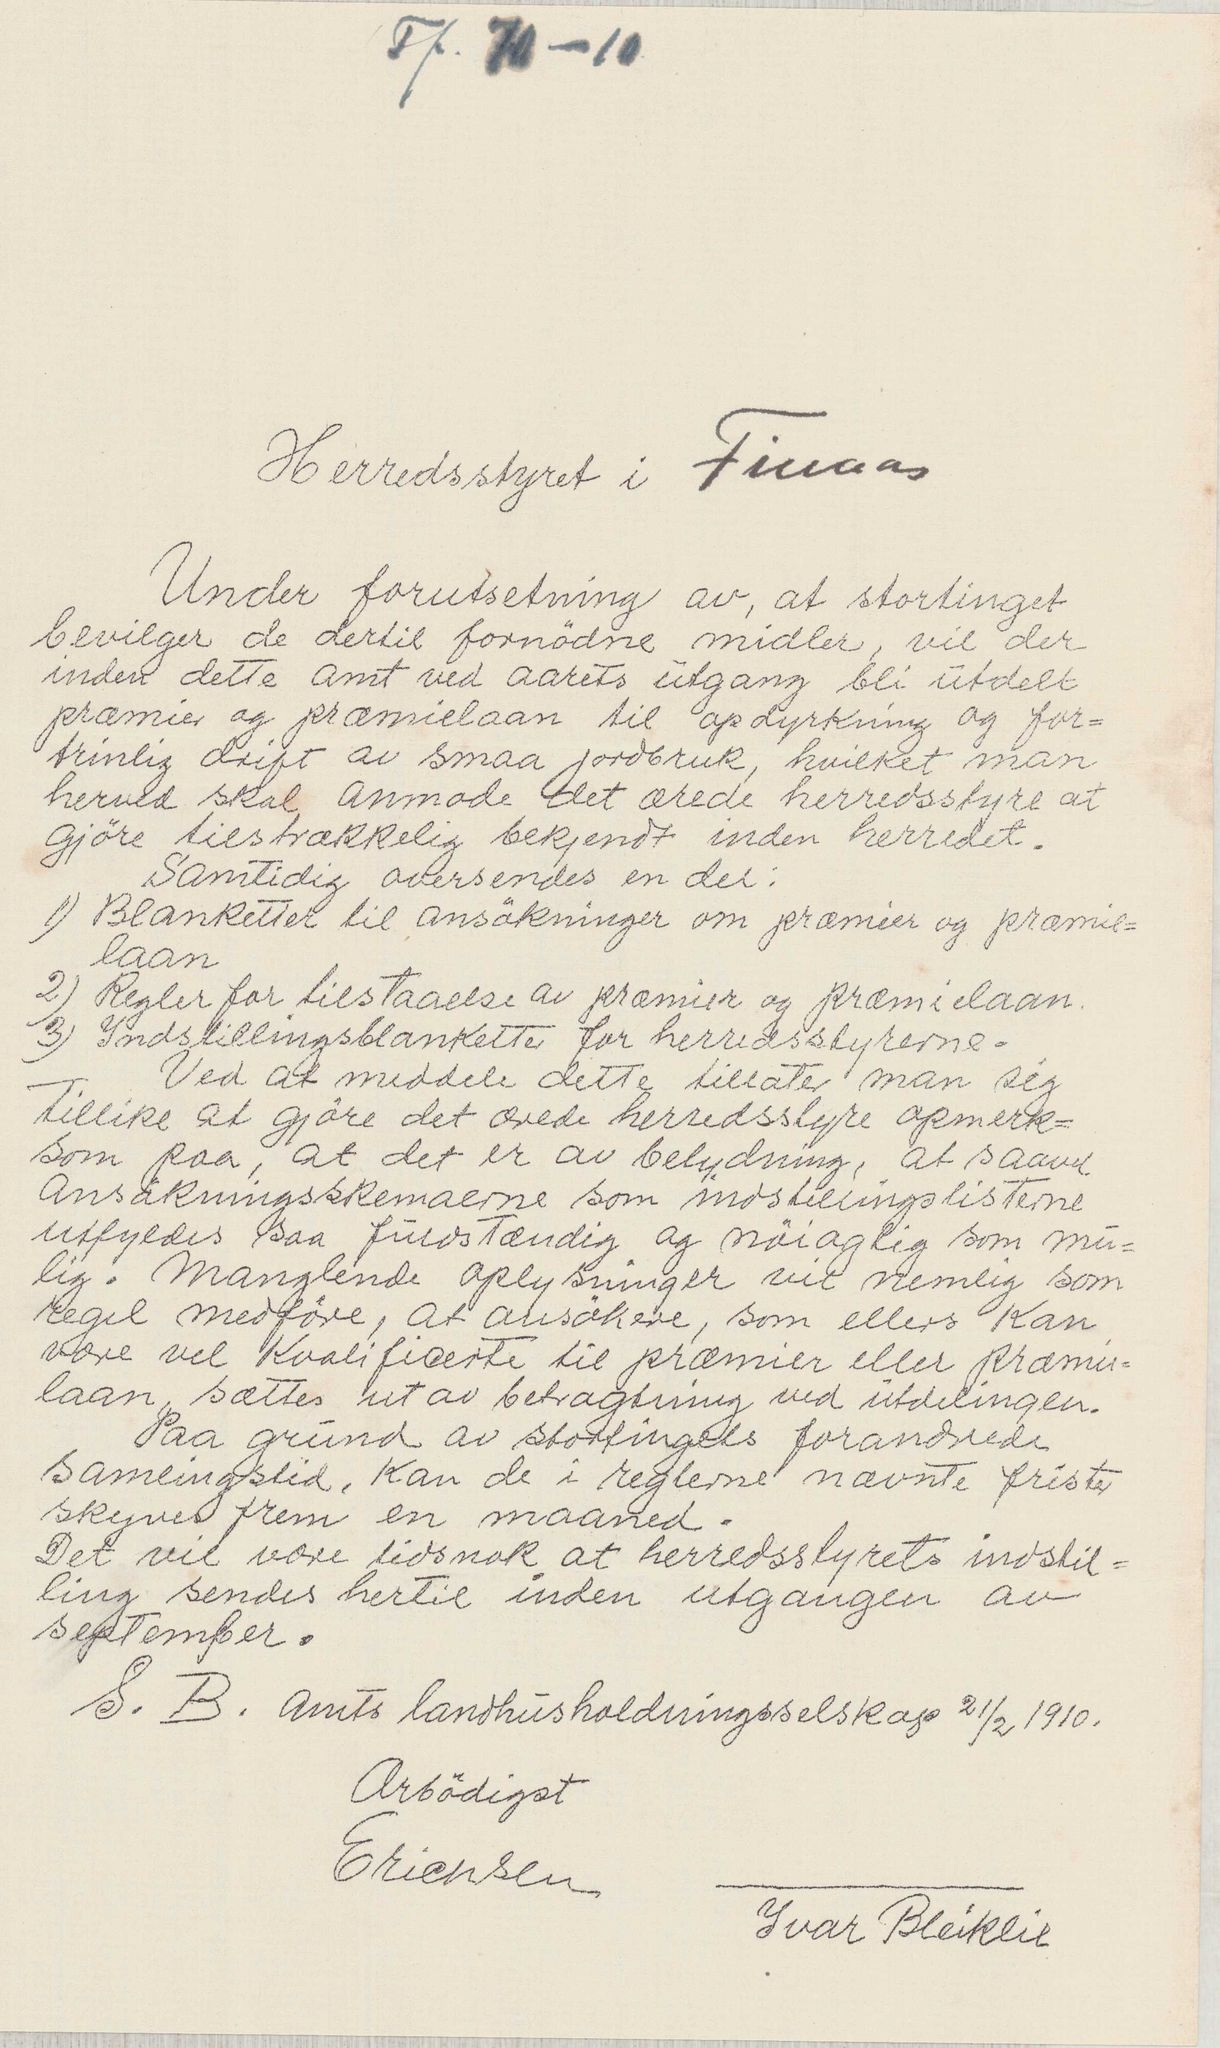 Tf. 70-10
Herredsstyret i Finnaas
Under forutsetning av, at stortinget
bevilger de dertil fornödne midler, vil der
inden dette amt ved aarets utgang bli utdelt
præmier og præmielaan til opdyrkning og for=
trinlig drift av smaa jordbruk, hvilket man
herved skal anmode det ærede herredsstyre at
gjöre tilstrækkelig bekjendt inden herredet.
Samtidig oversendes en del:
1) Blanketter til ansökninger om præmier og præmie=
laan
2) Regler for tilstaaelse av præmier og præmielaan.
3) Indstillingsblanketter for herredsstyrerne.
Ved at meddele dette tillater man sig
tillike at gjöre det ærede herredsstyre opmerk=
som paa, at det er av betydning, at saavel
ansökningsskemaerne som indstillingslisterne
utfyldes saa fuldstændig og nöiagtig som mu=
lig. Manglende oplysninger vil nemlig som
regel medföre, at ansökere, som ellers kan
være vel kvalificerte til præmier eller præmie=
laan, sættes ut av betragtning ved utdelingen.
Paa grund av stortingets forandrede
samlingstid, kan de i reglerne nævnte frister
skyves frem en maaned.
Det vil være tidsnok at herredsstyrets indstil=
ling sendes hertil inden utgangen av
september.
S. B. amts landhusholdningsselskap 21/2 1910.
Ærbödigst
Erichsen
Ivar Bleiklie